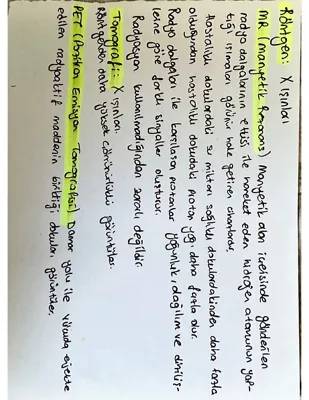 Röntgen: X ışınları
MR (Manyetik Rezonans) Manyetik alan içerisinde gönderilen
radyo dalgalarının etkisi ile hareket eden hidrojen atomunun yap-
tığı ışımaları görünür hale getiren cihazlardır.
Hastalıklı dokulardaki su miktarı sağlıklı dokulardakinden daha fazla
olduğundan hastalıklı dokudaki proton yoğ. daha fazla olur.
Radyo dalgaları ile karşılaşan protonlar yoğunluk, dağılım ve diziliş-
lerine göre farklı sinyaller oluşturur.
Radyasyon kullanılmadığından zararlı değildir.
Tomografi: X ışınları.
Röntgenden daha yüksek çözünürlüklü görüntüler.
PET (Pozitron Emisyon Tomografisi) Damar yolu ile vücuda enjekte
edilen radyoaktif maddenin biriktiği dokuları görüntüler.